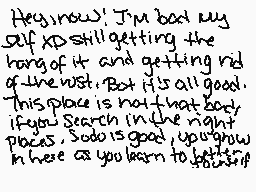 Hey, now! I'm bad my
self XD still getting the
hang of it and getting rid
of the rust. But it's all good.
This place is not that bad,
if you search in the right
places. Sudo is good, you grow
in here as you learn to better
yourself